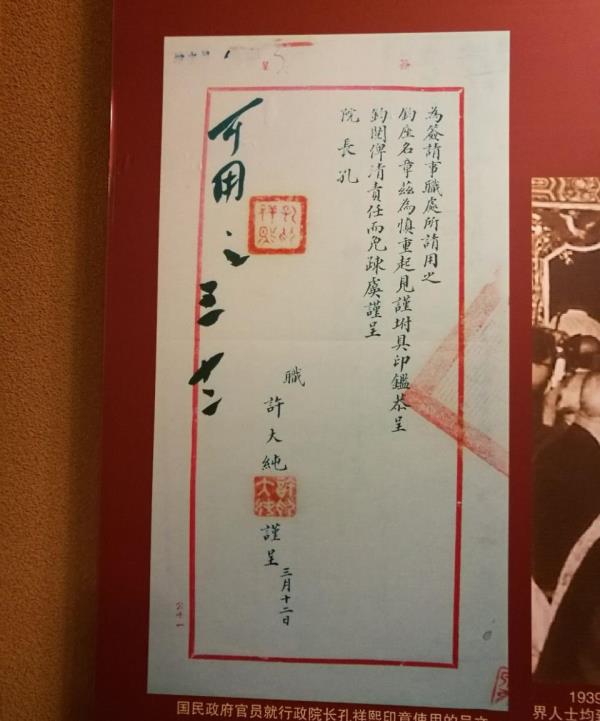 簽
呈
為簽請事職處所請用之
鈞座名章茲為慎重起見謹坿具印鑑恭呈
鈞閱俾清責任而免疎虞謹呈
院長孔
職
許大純
謹呈
三月十二日
可用之三、十二
孔祥熙印
国民政府官员就行政院长孔祥熙印章使用的呈文
1939
界人士均